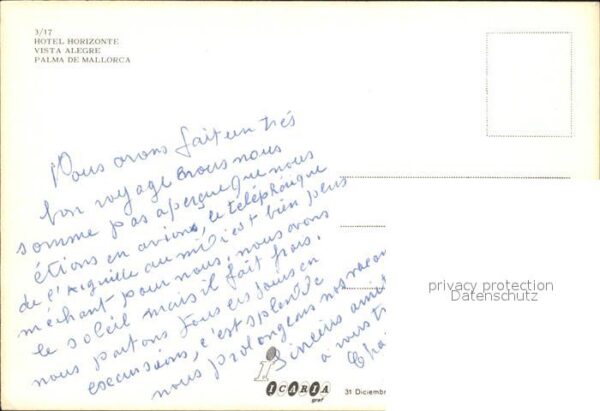 3/17
HOTEL HORIZONTE
VISTA ALEGRE
PALMA DE MALLORCA
Nous avons fait un très
bon voyage nous nous
somme pas aperçue que nous
étions en avions, le téléphérique
de l'Aiguille du midi est bien plus
méchant pour nous, nous avons
le soleil mais il fait frais.
nous partons tous les jours en
excursions, c'est splendide
nous prolongeons nos vacan
Sincères amit
à vous t
Cha
privacy protection
Datenschutz
ICARIA
graf
31 Diciembr